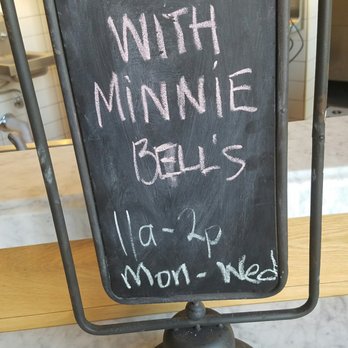 WITH
MINNIE
BELL'S
11a-2p
Mon-Wed